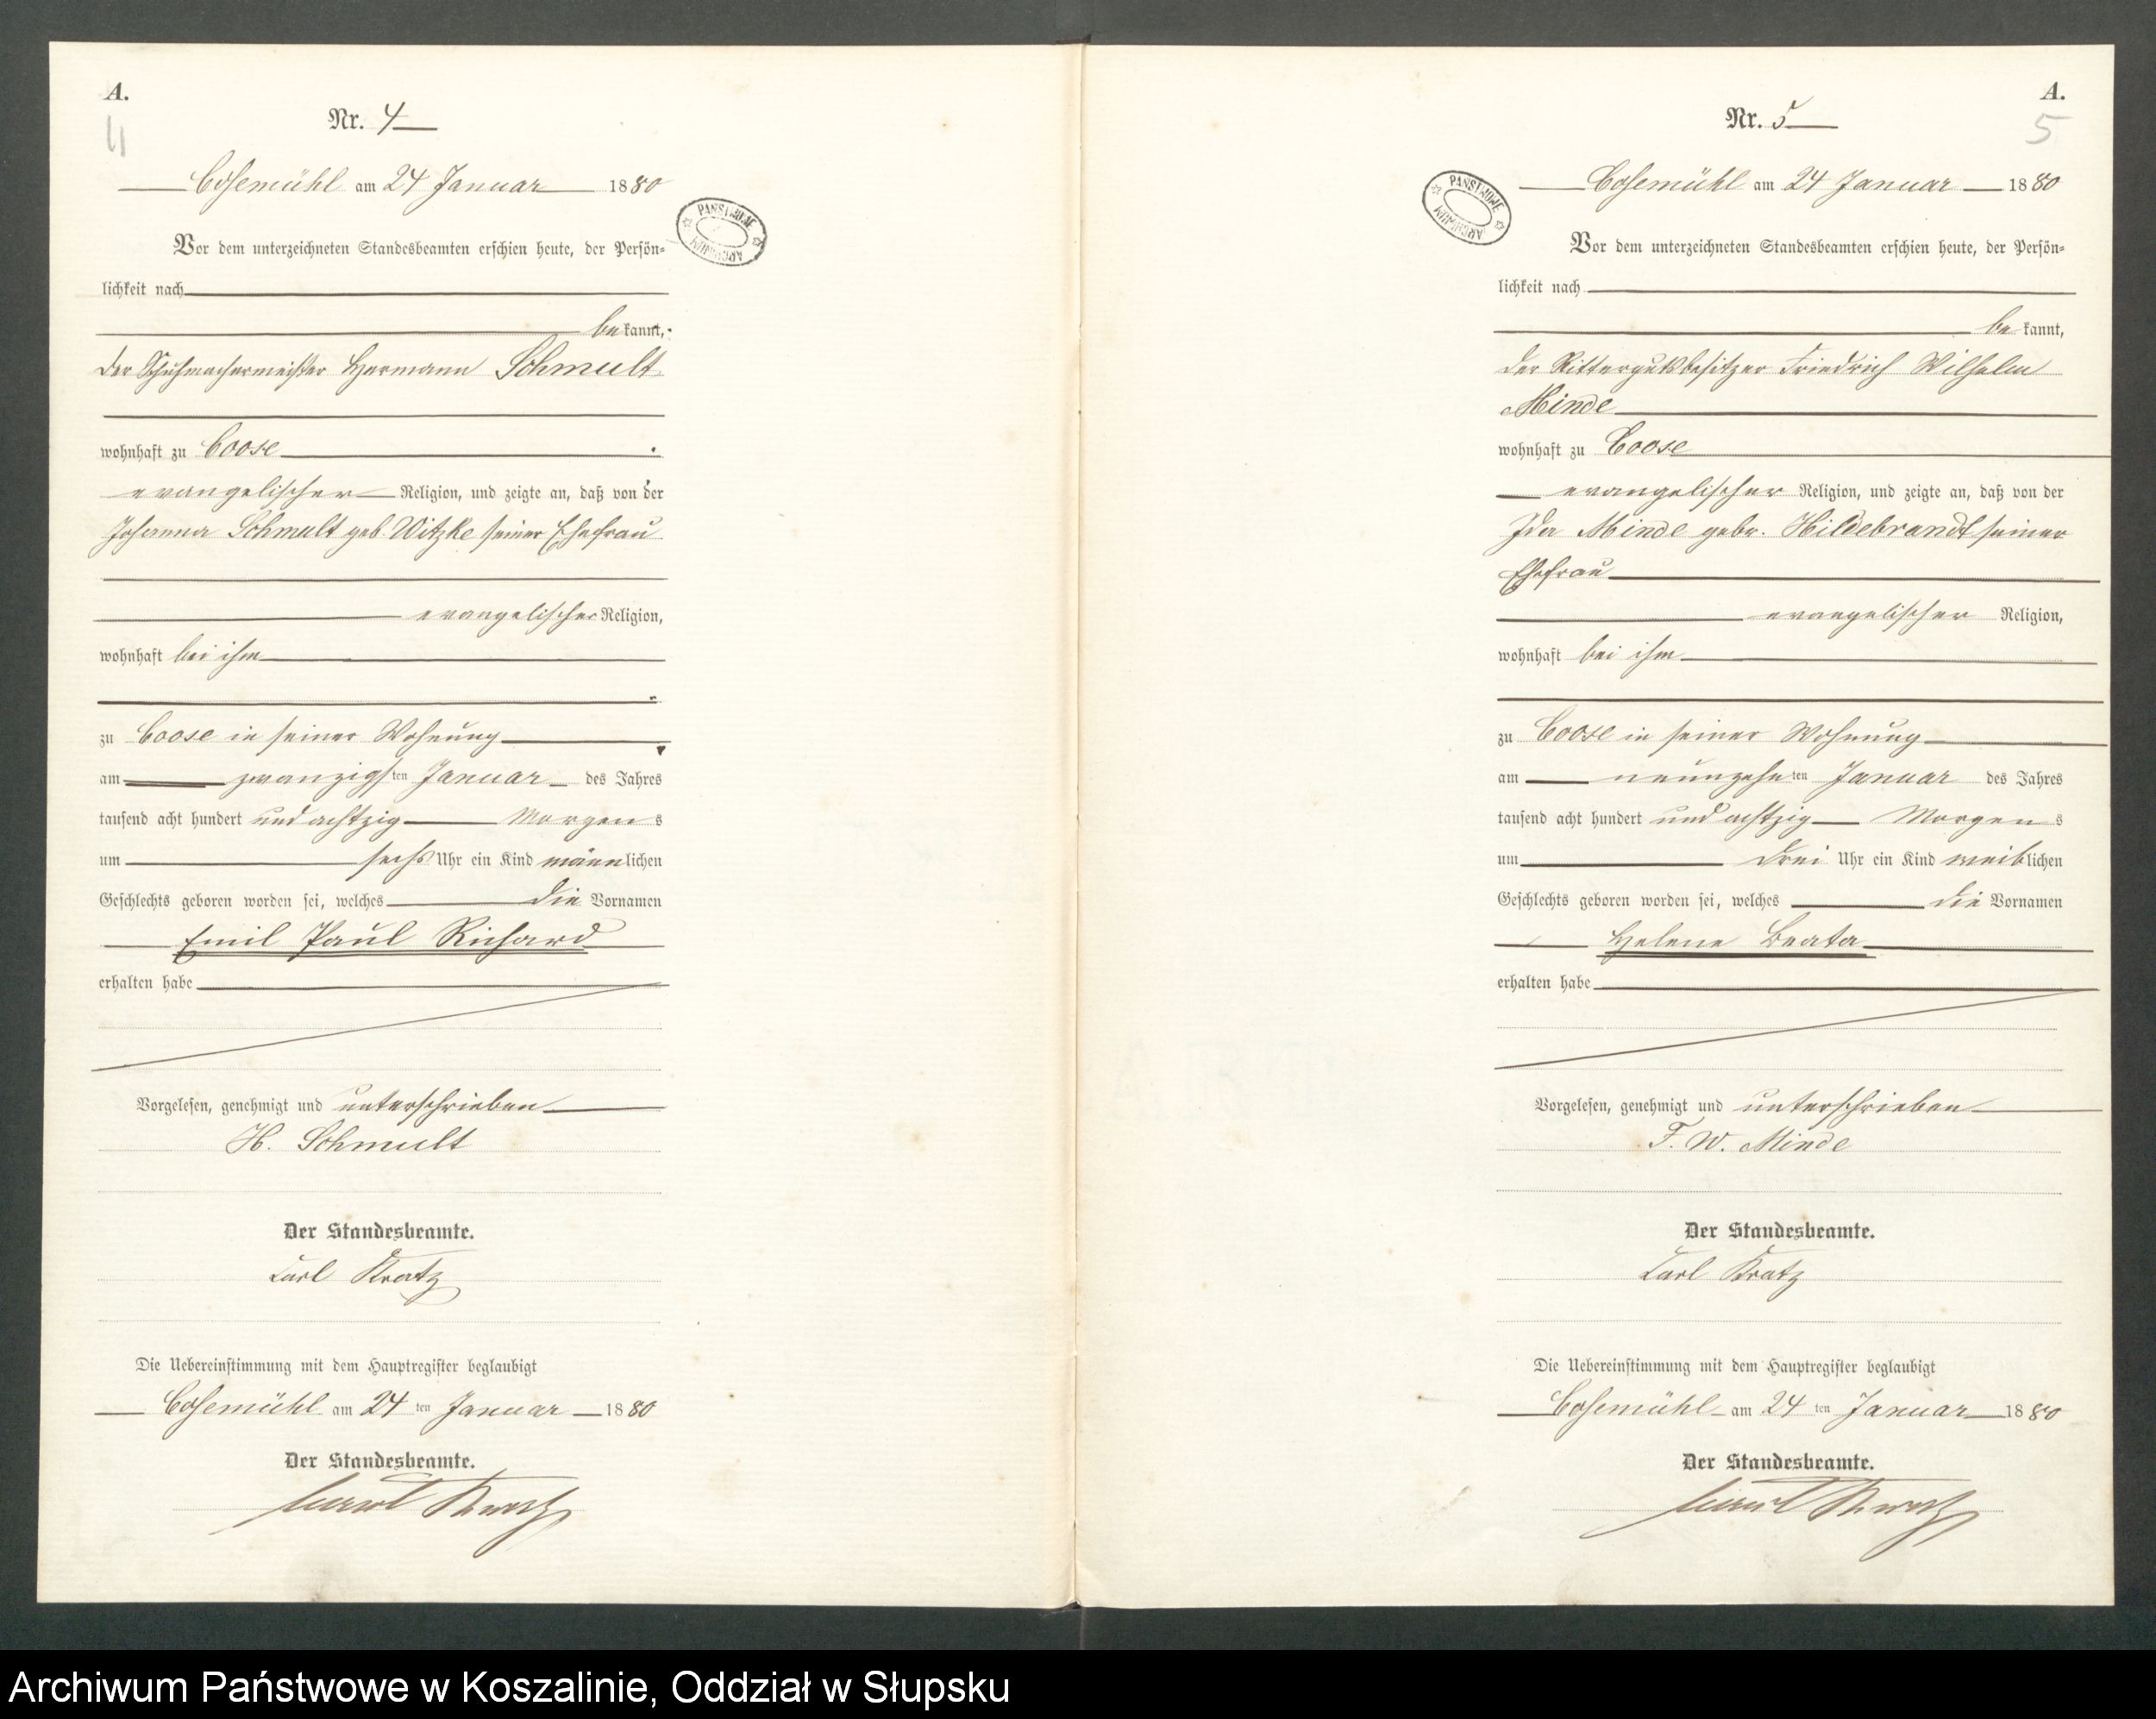 A.
4
Nr. 4
Cosemühl am 24 Januar 1880
PAŃSTWOWE ARCHIWUM
Vor dem unterzeichneten Standesbeamten erschien heute, der Persön=
lichkeit nach
bekannt,
der Schuhmachermeister Hermann Schmult
wohnhaft zu Coose
evangelischer Religion, und zeigte an, daß von der
Johanna Schmult geb. Witzke seiner Ehefrau
evangelischer Religion,
wohnhaft bei ihm
zu Coose in seiner Wohnung
am zwanzigsten Januar des Jahres
tausend acht hundert und achtzig Morgens
um sechs Uhr ein Kind männlichen
Geschlechts geboren worden sei, welches die Vornamen
Emil Paul Richard
erhalten habe
Vorgelesen, genehmigt und unterschrieben
H. Schmult
Der Standesbeamte.
Carl Kratz
Die Uebereinstimmung mit dem Hauptregister beglaubigt
Cosemühl am 24 ten Januar 1880
Der Standesbeamte.
Carl Kratz
A.
5
Nr. 5
Cosemühl am 24 Januar 1880
PAŃSTWOWE ARCHIWUM
Vor dem unterzeichneten Standesbeamten erschien heute, der Persön=
lichkeit nach
bekannt,
der Rittergutsbesitzer Friedrich Wilhelm
Minde
wohnhaft zu Coose
evangelischer Religion, und zeigte an, daß von der
Ida Minde gebr. Hildebrandt seiner
Ehefrau
evangelischer Religion,
wohnhaft bei ihm
zu Coose in seiner Wohnung
am neunzehnten Januar des Jahres
tausend acht hundert und achtzig Morgens
um drei Uhr ein Kind weiblichen
Geschlechts geboren worden sei, welches die Vornamen
Helene Beata
erhalten habe
Vorgelesen, genehmigt und unterschrieben
F. W. Minde
Der Standesbeamte.
Carl Kratz
Die Uebereinstimmung mit dem Hauptregister beglaubigt
Cosemühl am 24 ten Januar 1880
Der Standesbeamte.
Carl Kratz
Archiwum Państwowe w Koszalinie, Oddział w Słupsku